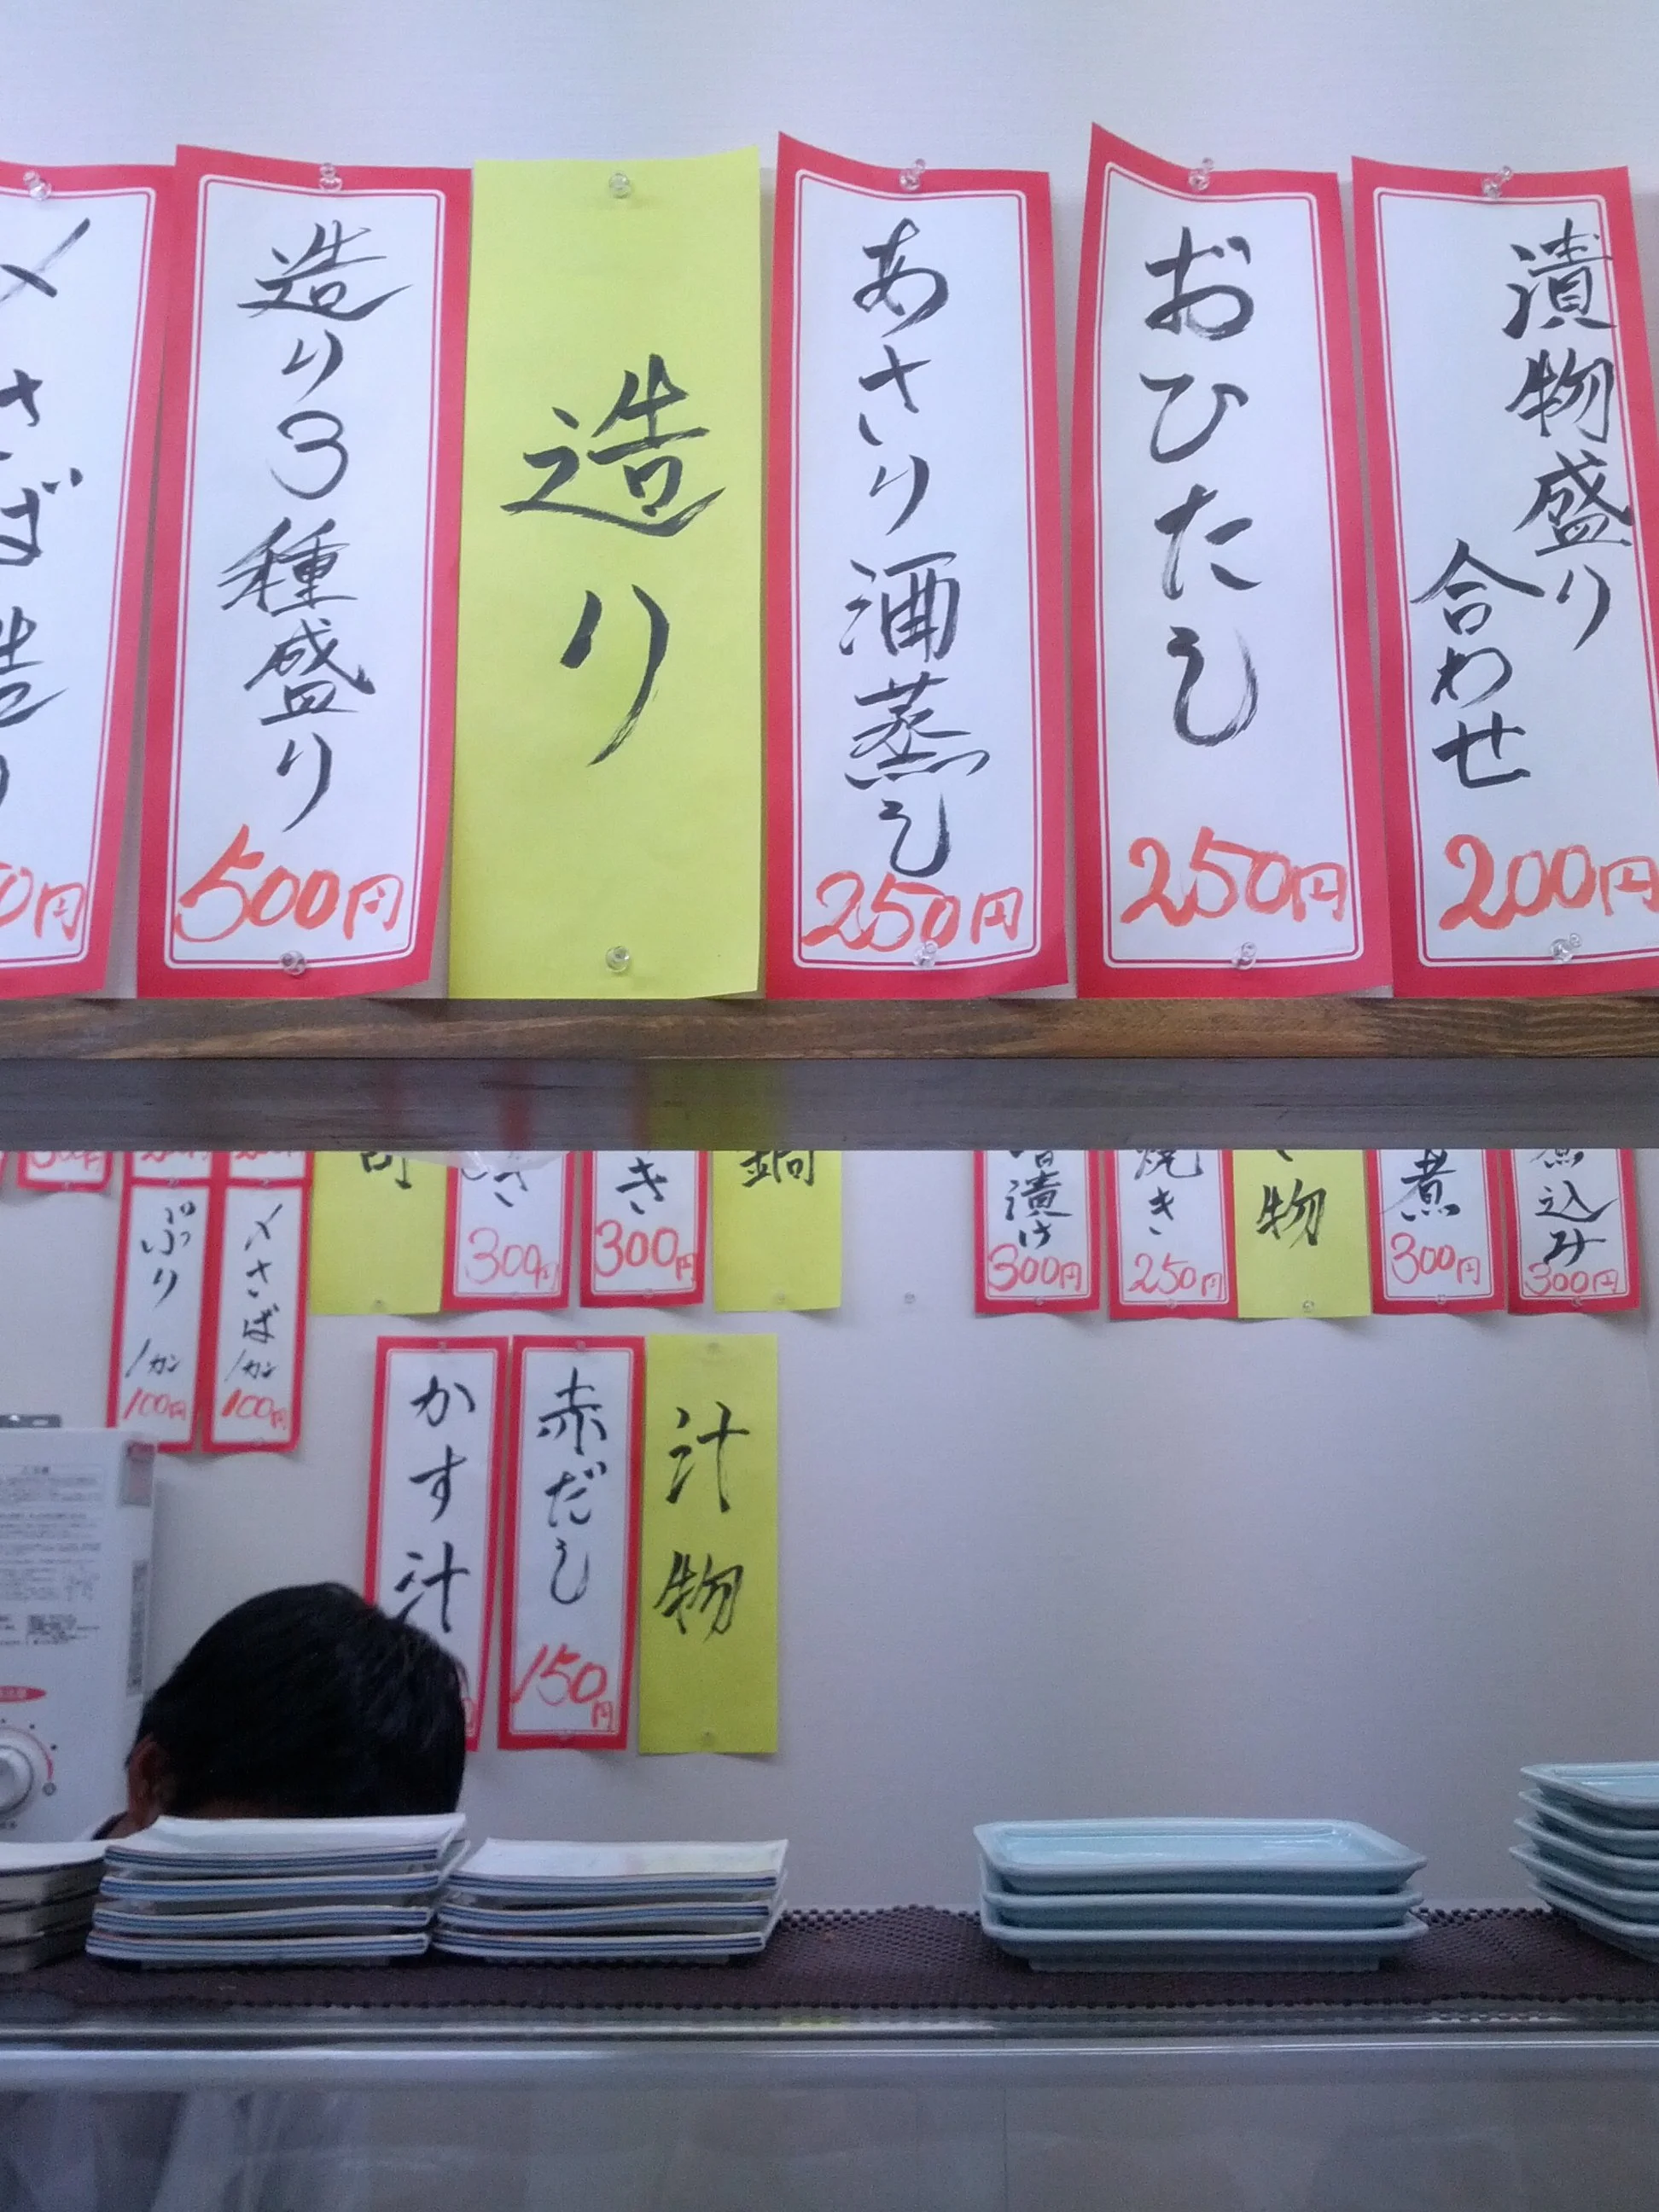 漬物盛り
合わせ
200円
おひたし
250円
あさり酒蒸し
250円
造り
造り3種盛り
500円
〆さば造り
0円
込み
300円
煮
300円
物
焼き
250円
漬け
300円
鍋
き
300円
さ
300円
〆さば
1カン
100円
ぷり
1カン
100円
汁物
赤だし
150円
かす汁